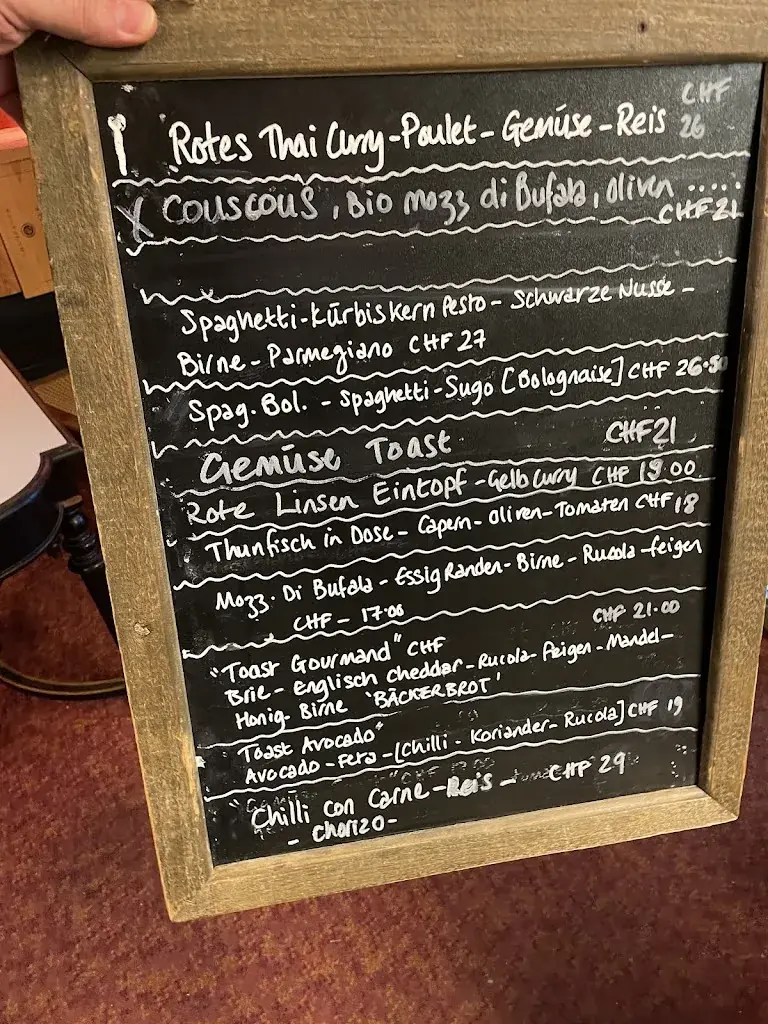 CHF
Rotes Thai Curry-Poulet-Gemüse-Reis 26
X COUSCOUS, Bio Mozz di Bufala, Oliven .....
CHF 21
Spaghetti-Kürbiskern Pesto - Schwarze Nüsse -
Birne - Parmegiano CHF 27
Spag. Bol. - Spaghetti-Sugo [Bolognaise] CHF 26.50
Gemüse Toast CHF 21
Rote Linsen Eintopf - Gelb Curry CHF 19.00
Thunfisch in Dose - Capern - Oliven - Tomaten CHF 18
Mozz. Di Bufala - Essig Randen - Birne - Rucola - Feigen
CHF - 17.00
CHF 21.00
"Toast Gourmand" CHF
Brie - Englisch Cheddar - Rucola - Feigen - Mandel -
Honig - Birne 'BÄCKERBROT'
Toast Avocado"
Avocado - Feta - [Chilli - Koriander - Rucola] CHF 19
Chilli con Carne - Reis - CHF 29
- Chorizo -